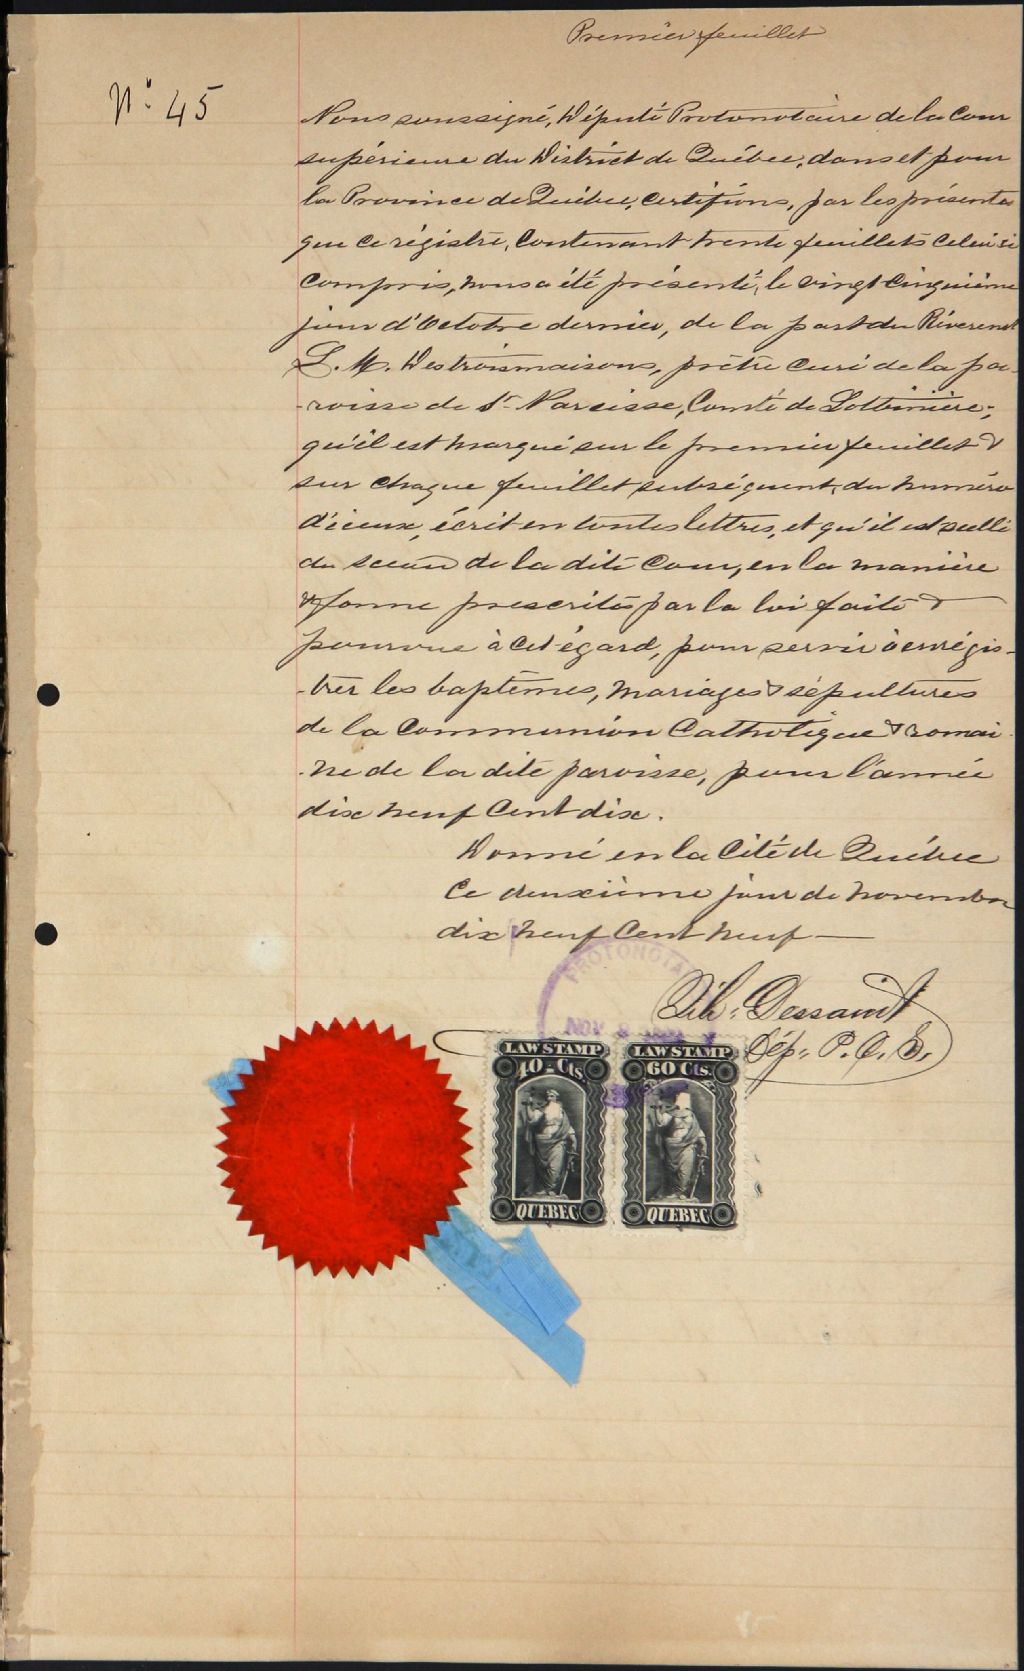 Premier feuillet
N° 45
Nous soussigné, Député Protonotaire de la Cour
supérieure du District de Québec, dans et pour
la Province de Québec, certifions, par les présentes
que ce régistre, contenant trente feuillets celui ci
compris, nous a été présenté, le vingt cinquième
jour d'Octobre dernier, de la part du Réverend
L. M. Destroismaisons, prêtre curé de la pa-
-roisse de St Narcisse, Comté de Lotbinière;
qu'il est marqué sur le premier feuillet &
sur chaque feuillet subséquent, du numéro
d'iceux, écrit en toutes lettres, et qu'il est scellé
du sceau de la dite Cour, en la manière
& forme prescrites par la loi faite &
pourvue à cet égard, pour servir à enrégis-
-trer les baptêmes, mariages & sépultures
de la Communion Catholique & romai-
-ne de la dite paroisse, pour l'année
dix neuf cent dix.
Donné en la Cité de Québec
ce deuxième jour de novembre
dix neuf cent neuf —
PROTONOTA
NOV
Dessaint
Dép. P. C. S.
LAW STAMP LAW STAMP
40 Cts. 60 Cts.
QUEBEC QUEBEC